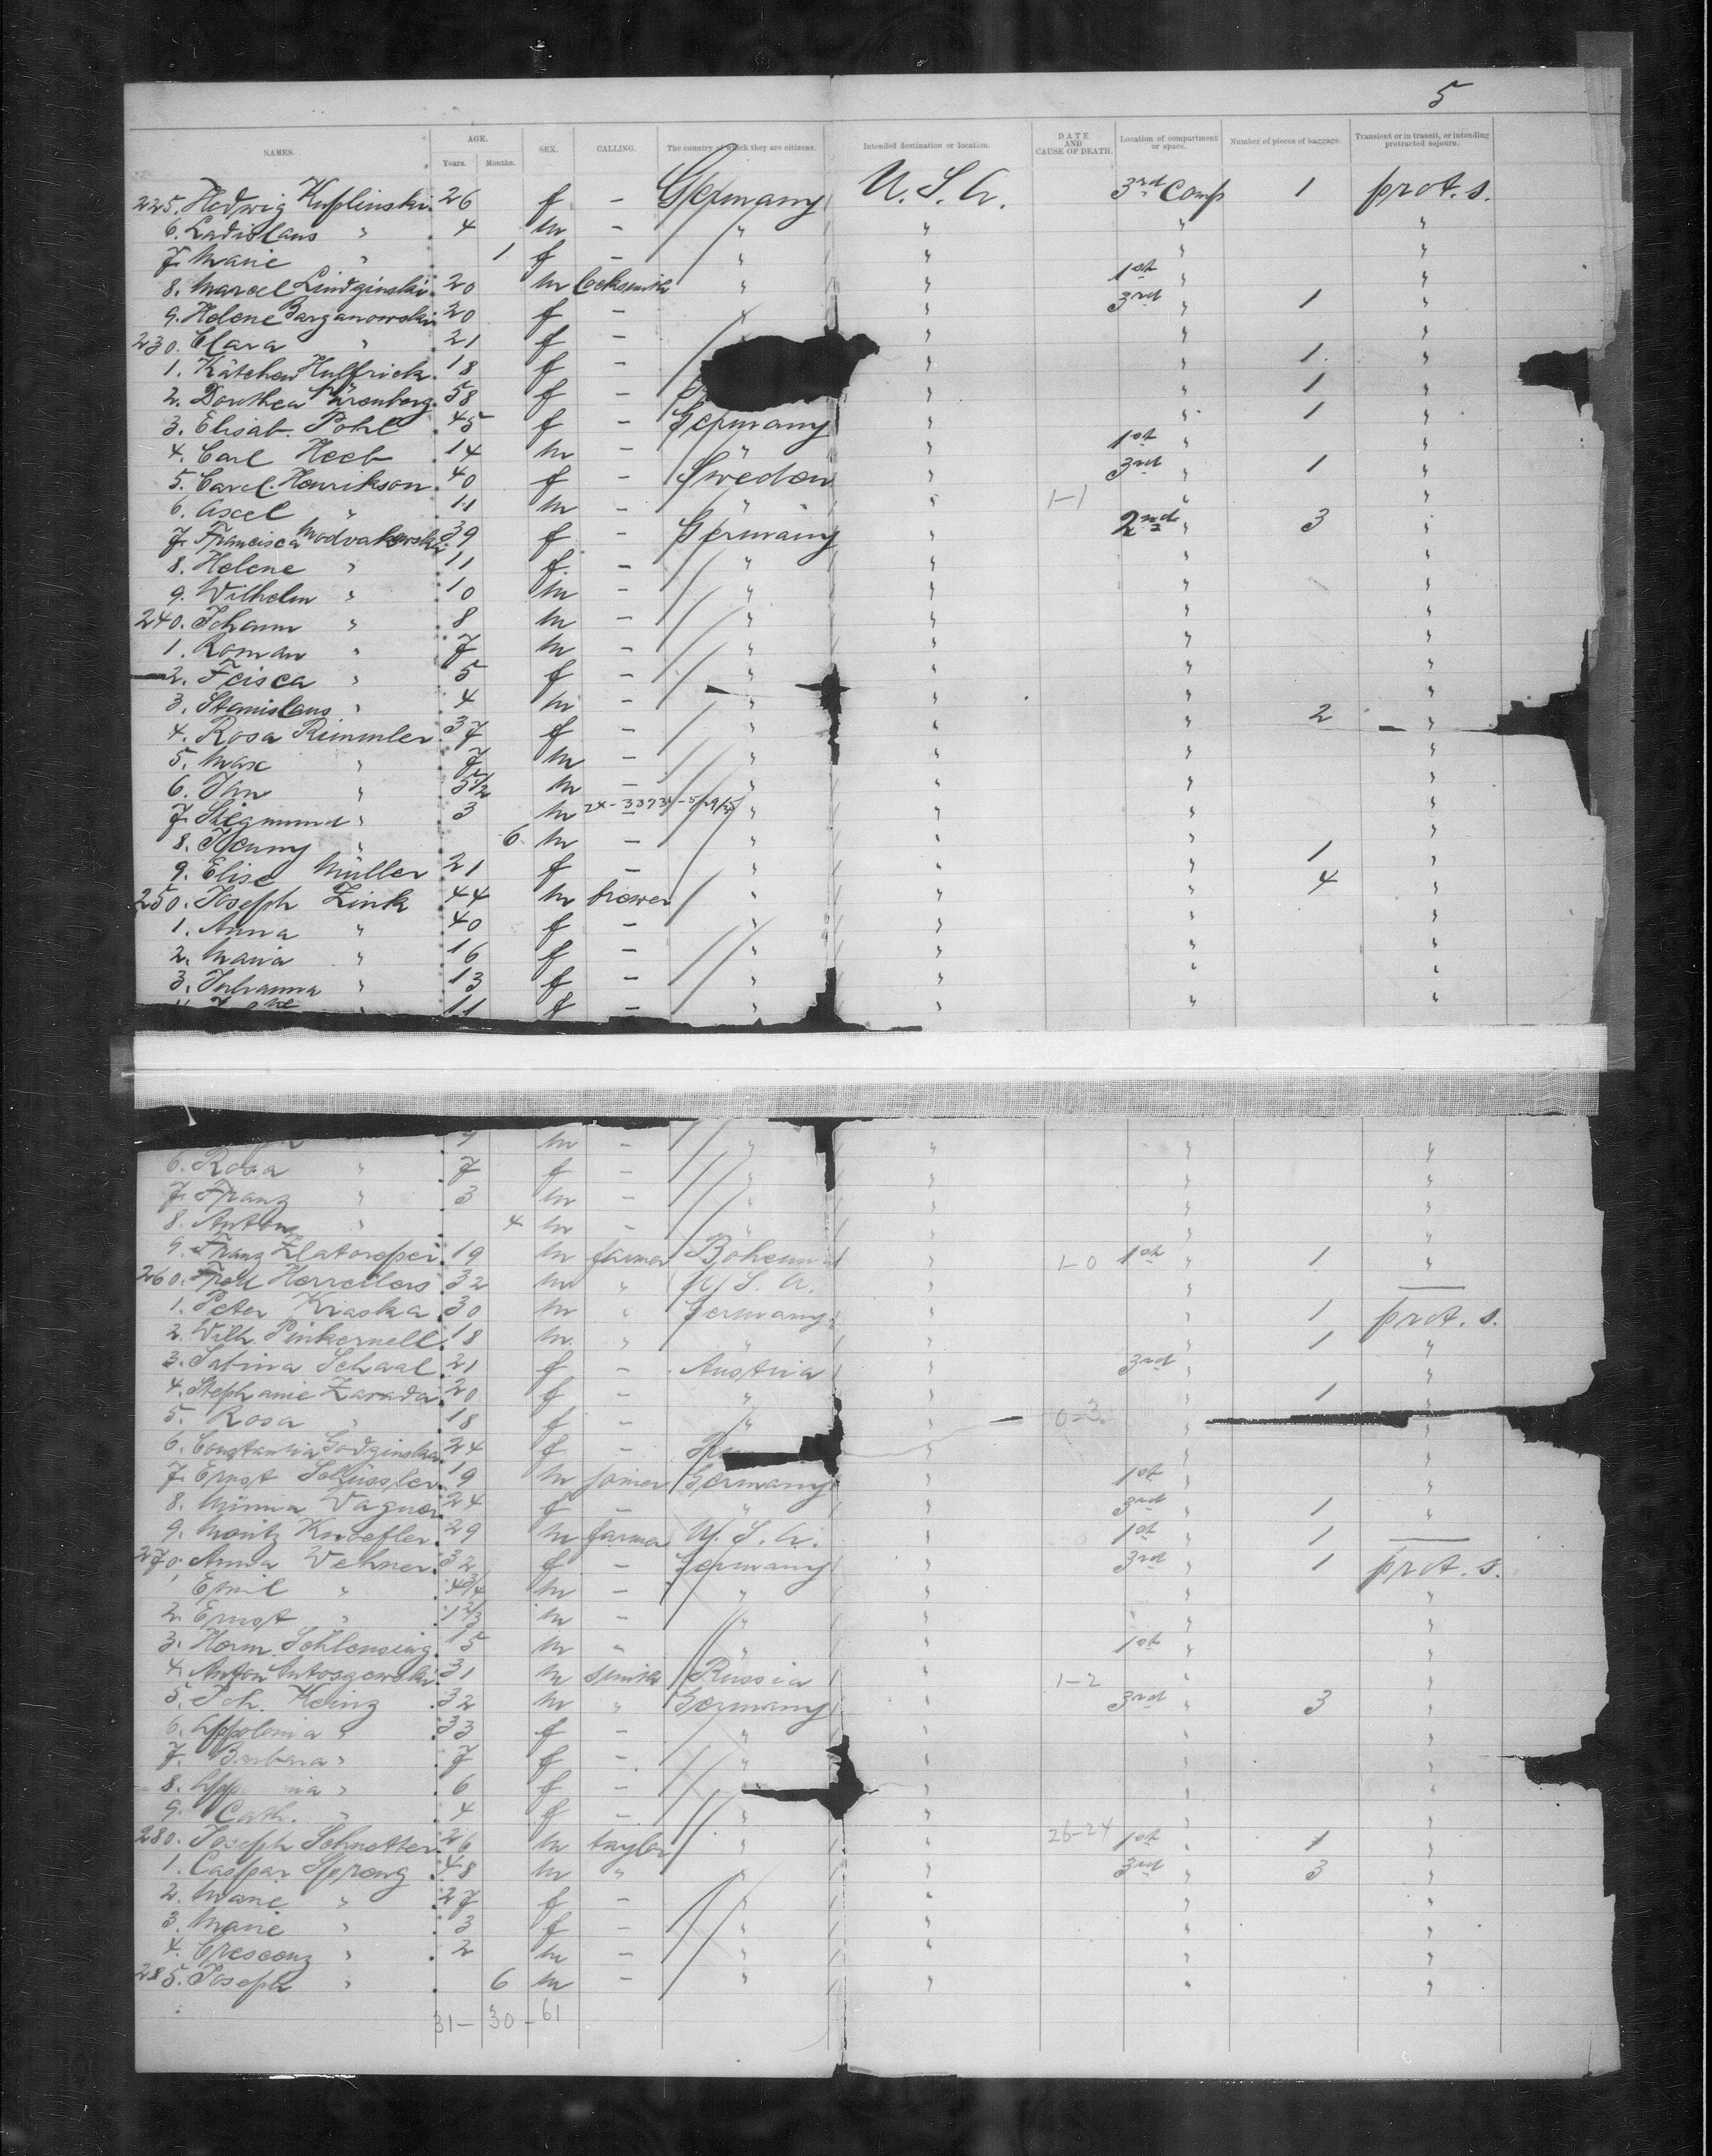 5
NAMES. AGE. Years. Months. SEX. CALLING. The country of which they are citizens. Intended destination or location. DATE AND CAUSE OF DEATH. Location of compartment or space. Number of pieces of baggage. Transient or in transit, or intending protracted sojourn.
225. Hedwig Kuplinski 26 f - Germany U. S. A. 3rd Comp 1 prot. s.
6. Ladislaus " 4 m - " " " "
7. Marie " 1 f - " " " "
8. Marcel Lindzinski 20 m locksmith " " 1st " "
9. Helene Barganowski 20 f - " " 3rd " 1 "
230. Clara " 21 f - " " "
1. Kätchen Hulfrich 18 f - " " 1 "
2. Dorothea Nürenberg 58 f - " " 1 "
3. Elisab. Pohl 45 f - Germany " " 1 "
4. Carl Heeb 14 m - " " 1st " "
5. Carol. Henrikson 40 f - Sweden " 3rd " 1 "
6. Axel " 11 m - " " 1-1 " "
7. Francisca 39 f - Germany " 2nd " 3 "
8. Helene " 11 f - " " " "
9. Wilhelm " 10 m - " " " "
240. Johann " 8 m - " " " "
1. Roman " 7 m - " " " "
2. Fcisca " 5 f - " " " "
3. Stanislaus " 4 m - " " " "
4. Rosa Rimmler 37 f - " " " 2 "
5. Max " 7 m - " " " "
6. Jhn " 5 1/2 m - " " " "
7. Siegmund " 3 m - " " " "
8. Henny " 6 m - " " " "
9. Elise Müller 21 f - " " " 1 "
250. Joseph Zink 44 m brewer " " " 4 "
1. Anna " 40 f - " " " "
2. Maria " 16 f - " " " "
3. Johanna " 13 f - " " " "
" 11 f - " " " "
9 m - " " " "
6. Rosa " 7 f - " " " "
7. Franz " 3 m - " " " "
8. Anton " 4 m - " " " "
9. Franz Zlatoropei 19 m farmer Bohemia " 1-0 1st " 1 "
260. Fred Herreilers 32 m " U. S. A. " " —
1. Peter Kriaska 30 m " Germany " " 1 prot. s.
2. Wilh. Pinkernell 18 m " " " " 1 "
3. Sabina Schaal 21 f - Austria " 3rd " "
4. Stephanie Zarada 20 f - " " " 1 "
5. Rosa " 18 f - " " 0-3 " "
6. Constantia Godzinska 24 f - " " "
7. Ernst Schüssler 19 m joiner Germany " 1st " "
8. Minna Wagner 24 f - " " 3rd " 1 "
9. Moritz Knoefler 29 m farmer U. S. A. " 1st " 1 —
270. Anna Wehner 32 f - Germany " 3rd " 1 prot. s.
1 Emil " 4 3/4 m - " " " "
2. Ernst " 1 2/3 m - " " " "
3. Herm. Schlensing 15 m " " " 1st " "
4. Anton Antosgewski 31 m smith Russia " 1-2 " "
5. Joh. Heinz 32 m " Germany " 3rd " 3 "
6. Appolonia " 33 f - " " " "
7. Barbara " 7 f - " " " "
8. " 6 f - " " " "
9. Cath. " 4 f - " " " "
280. Joseph Schnetter 26 m taylor " " 26-24 1st " 1 "
1. Caspar Spreng 48 m " " " 3rd " 3 "
2. Marie " 27 f - " " " "
3. Marie " 3 f - " " " "
4. Crescenz " 2 m - " " " "
285. Joseph " 6 m - " " " "
31 - 30 - 61